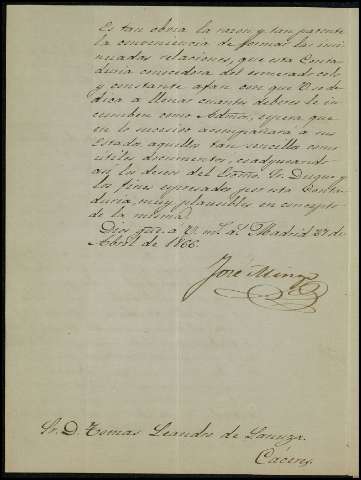 Es tan obvia la razon y tan patente
la conveniencia de formar las insi-
nuadas relaciones, que esta Conta-
duria conocedora del esmerado celo
y constante afan con que V. se de-
dica a llenar cuantos deberes le in-
cumben como Admor, espera que
en lo sucesivo acompañara a sus
Estados, aquellos tan sencillos como
utiles documentos, coadyuvando
asi los deseos del Exmo. Sr. Duque y
los fines espresados por esta Conta-
duria, muy plausibles en concepto
de la misma.
Dios gue. a V. ms. as. Madrid 27 de
Abril de 1866.
José
Sr. D. Tomas Leandro de Lanuza.
Cáceres.